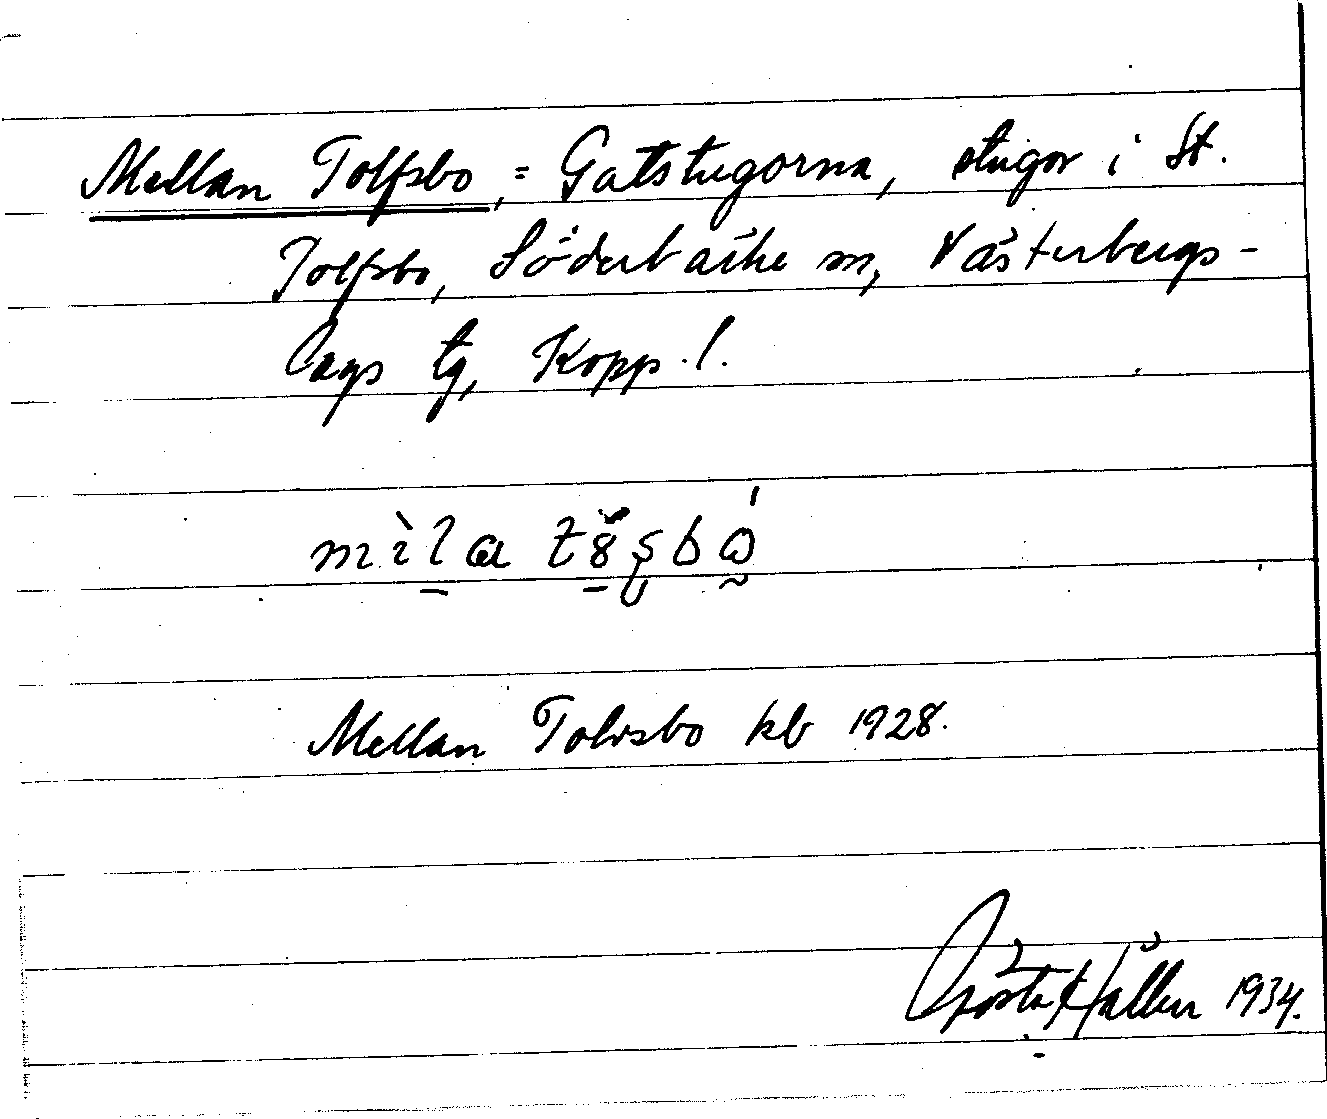 Mellan Tolfsbo, = Gatstugorna, stugor i St.
Tolfsbo, Söderbärke sn, Västerbergs-
lags tg, Kopp. l.
Mellan Tolvsbo kb 1928.
Gösta Hallén 1934.